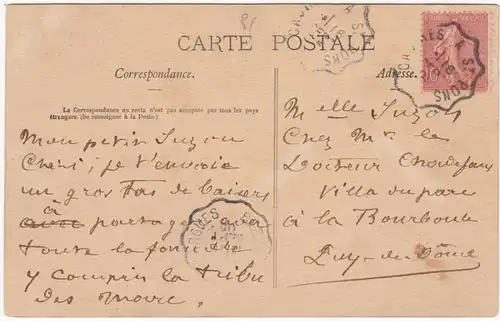 CARTE POSTALE
Correspondance.
Adresse.
La Correspondance au recto n'est pas acceptée par tous les pays
étrangers. (Se renseigner à la Poste)
Mon petit Suzon
Chéri, je t'envoie
un gros tas de baisers
à partager avec
toute la famille
y compris la tribu
des
Melle Suzon
Chez Mr le
Docteur
Villa du parc
à la Bourboule
Puy-de-Dôme